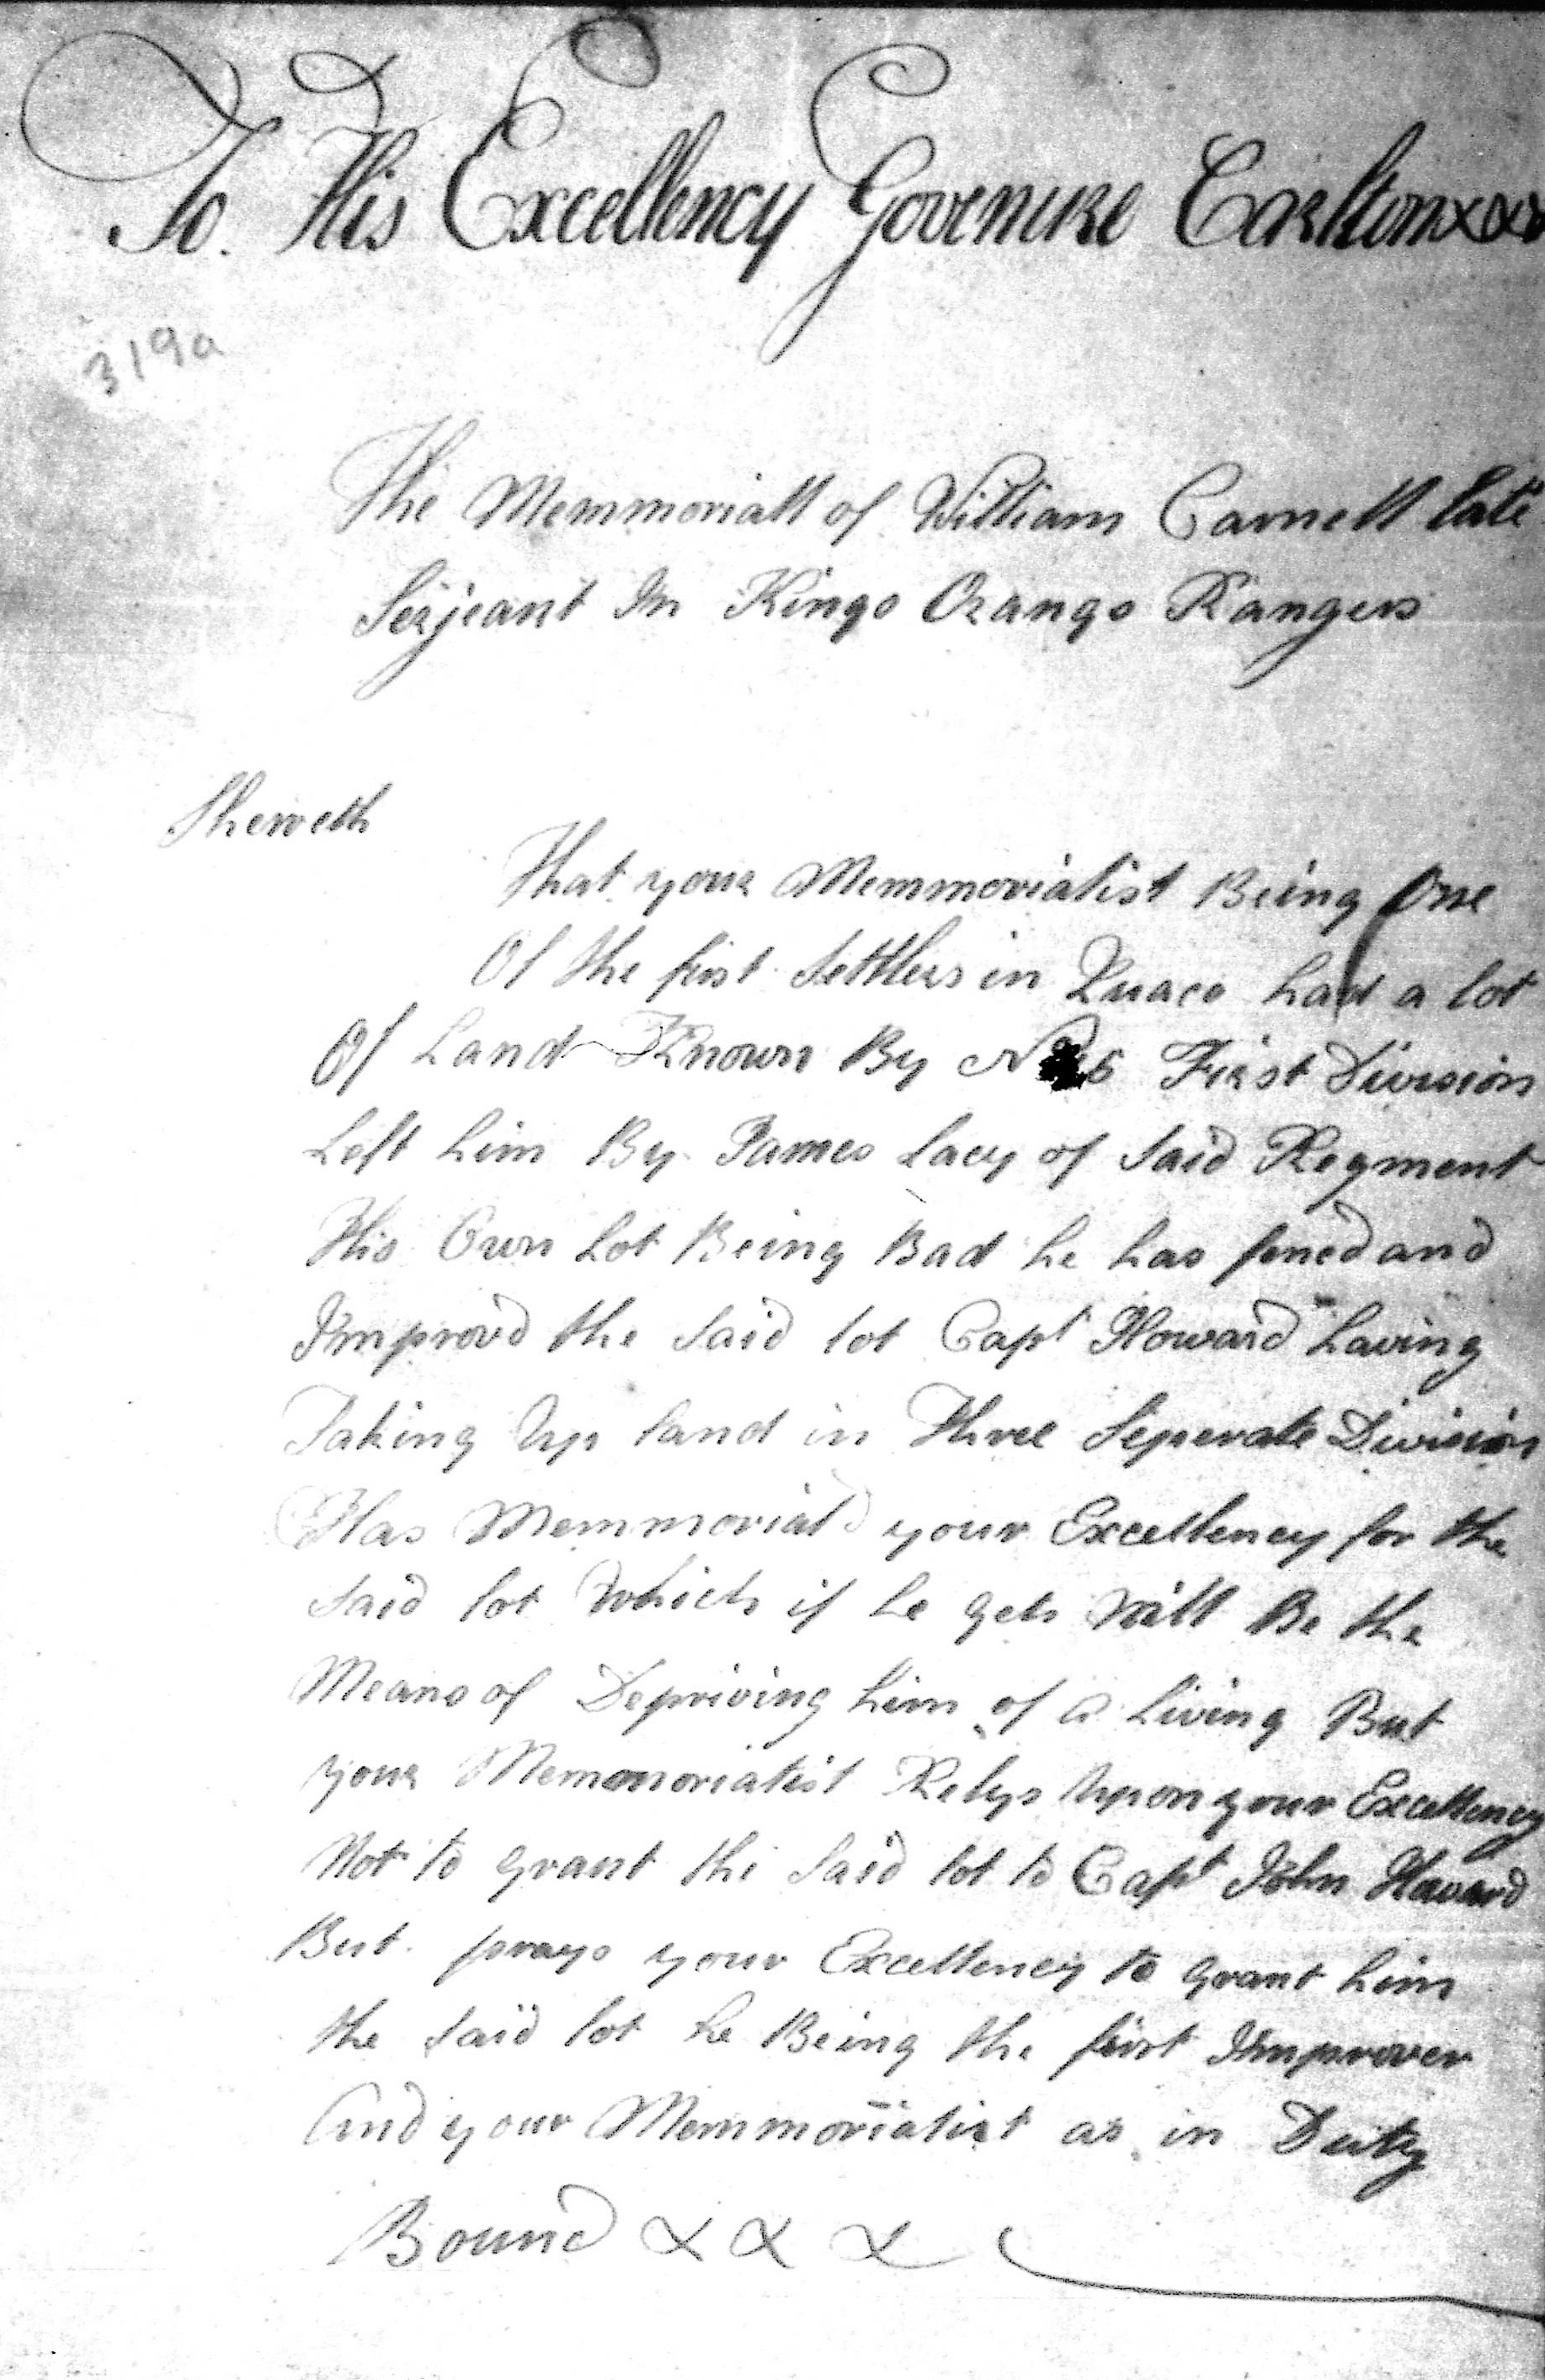 To. His Excellency Governure Carlton xxx
319a
The Memmoriall of William Carnell late
Serjeant In Kings Orange Rangers
Sheweth
That your Memmorialist Being One
Of the first Settlers in Quaco had a lot
Of Land Known By First Division
Left him By James Lacy of Said Regment
His Own Lot Being Bad he has fencd and
Improvd the Said lot Capt Howard having
Taking Up land in Three Seperate Division
Has Memmoriald your Excellency for the
Said lot Which if he gets Will Be the
Means of Depriving him of a Living But
your Memmorialist Relys Upon your Excellency
Not to grant the Said lot to Capt John Howard
But prays your Excellency to grant him
the Said lot he Being the first Improver
And your Memmorialist as in Duty
Bound x x x